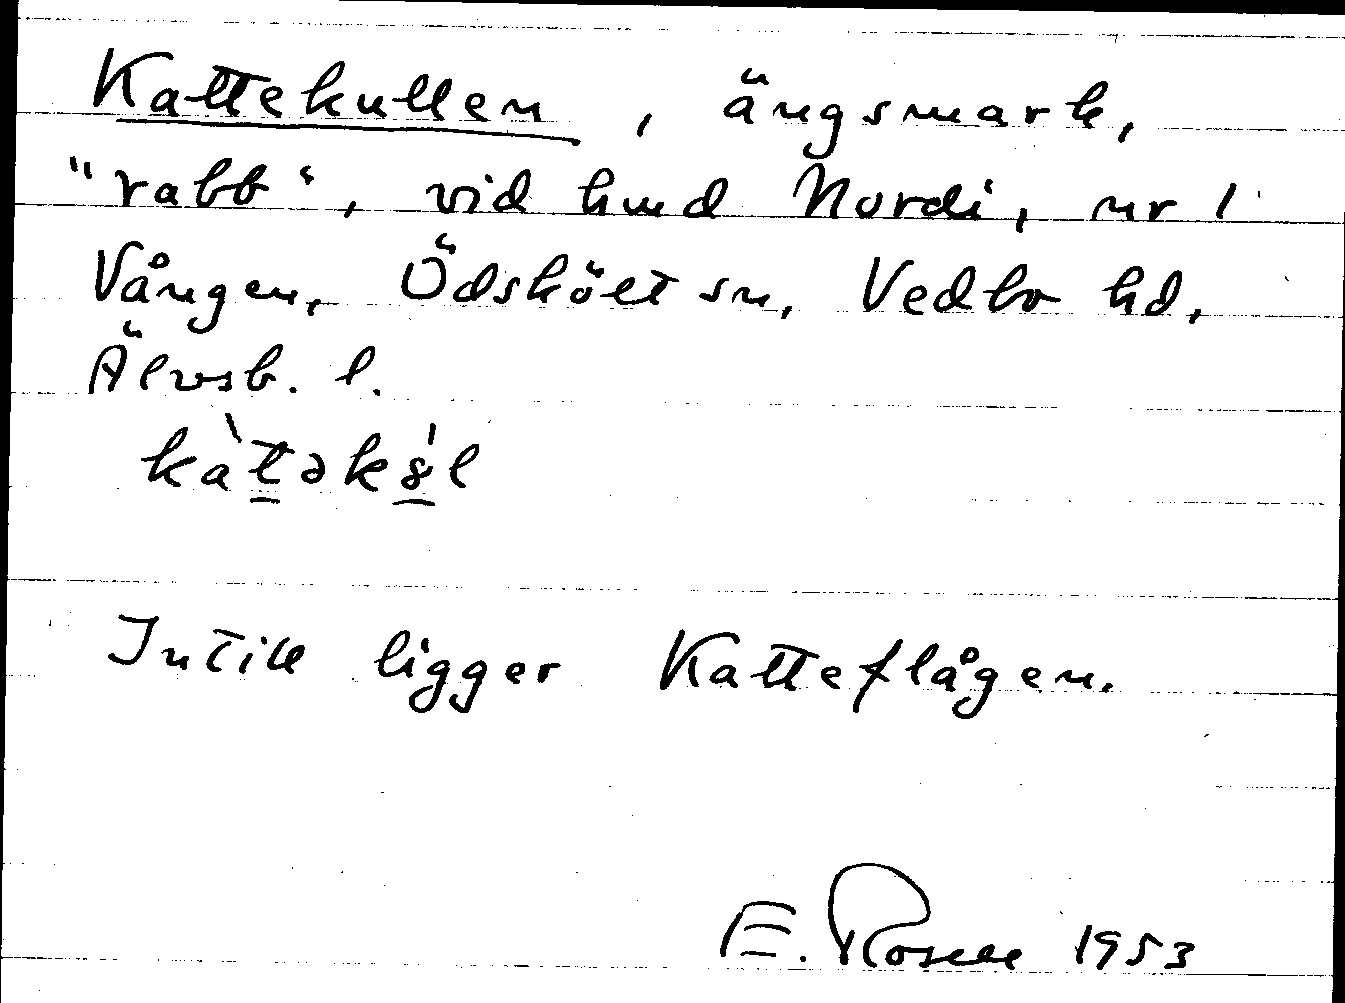 Kattekullen, ängsmark,
"rabb", vid hmd Nordi, nr 1
Vången, Ödskölt sn, Vedbo hd,
Älvsb. l.
Intill ligger Katteflågen.
E. Rosell 1953